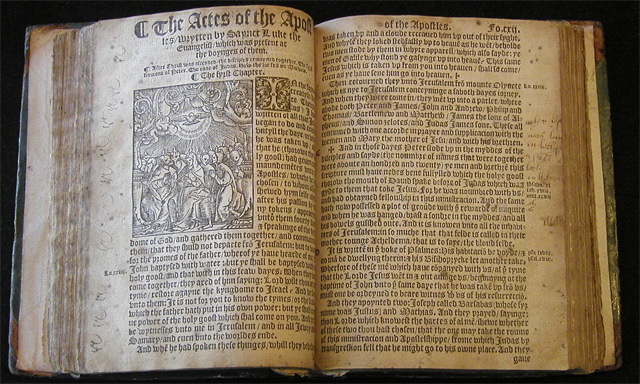 The Actes of the Apost
tes, wrytten by Saynct Luke the
Euangelist, which was present at
the doynges of them.
After Christ was ascended, the disciples retourned together. The
sermone of Peter. The ende of Judas.
The fyrst Chapter.
IN the
wrytten of all that
began to do and
vntyll the daye
he was taken vp
that he (thorow the
goost) had geuen
maundementes vnto
Apostles, whom
chosen: to whom
shewed hym selfe
after his passion
ny tokens, apper
vnto them
a speakynge of the
dome of God, and gathered them together, and comman
them, that they shuld not departe from Jerusalem: but
for the promes of the father, wherof ye haue hearde of
John baptysed with water: but ye shall be baptysed with
holy goost, and that in this feaw dayes: When they
come together, they axed of hym saying: Lord wilt thou
tyme, restore agayne the kyngdome to Israel? And
vnto them: It is not for you to knowe the tymes, or the
which the father hath put in his owne power: but ye shall
ue power of the holy goost which shal come on you. And
be wytnesses vnto me in Jerusalem, and in all Jewry
Samary, and euen vnto the worldes ende.
And whē he had spoken these thynges, whyll they beheld
of the Apostles. Fo.cxij.
was taken vp and a cloude receaued him vp out of their syght.
And whyle they loked stedfastly vp to heauē as he wēt, beholde
two men stode by them in whyte apparell, which also sayde: ye
men of Galile why stond ye gasynge vp into heauē? This same
Jesus which is taken vp from you into heauen, shall so come,
euen as ye haue sene him go into heauen.
Then retourned they vnto Jerusalem frō mounte Olyuete
which is nye to Jerusalem conteynynge a saboth dayes iourney.
And when they were come in, they wēt vp into a parler, where
abode both Peter and James, John and Andrew, Philip and
Thomas, Bartlemew and Matthew, James the sonne of Al-
pheus, and Simon zelotes, and Judas James sonne. These all
continued with one accorde in prayer and supplicacion with the
wemen and Mary the mother of Jesu, and with his brethren.
And in those dayes Peter stode vp in the myddes of the
disciples and sayde: (the nombre of names that were together
were aboute an hondred and twenty) ye men and brethrē this
scripture must haue nedes bene fulfylled which the holy goost
thorow the mouth of Dauid spake before of Judas which was
gyde to them that toke Jesus, for he was nombred with vs,
and had obtayned felouship in this ministracion. And the same
hath now possessed a plot of grounde with the rewarde of iniquite
and when he was hanged, brast a sondre in the myddes, and all
his bowels gusshed oute. And it is knowen vnto all the inhabi-
ters of Jerusalem: in so muche, that that felde is called in their
mother tounge Acheldema, that is to saye, the bloud felde.
It is written in ye boke of Psalmes: His habitacion be voyde,
and no be dwellyng therin: and his Bisshoprycke let another take.
Wherfore of these mē which haue cōpanyed with vs, all ye tyme
that the Lorde Jesus wēt in & out amonge vs, begynnyng at the
baptyme of John vnto ye same daye that he was takē vp frō vs,
must one be ordeyned to beare witnes wt vs of his resurrectiō.
And they apoynted two: Joseph called Barsabas (whose syr
name was Justus) and Mathias. And they prayed, sayinge:
thou Lorde which knowest the hartes of all mē: shewe whether
of these two thou hast chosen, that the one may take the roume
of this ministracion and Apostleshippe, from which Judas by
transgression fell that he might go to his owne place. And they
gaue